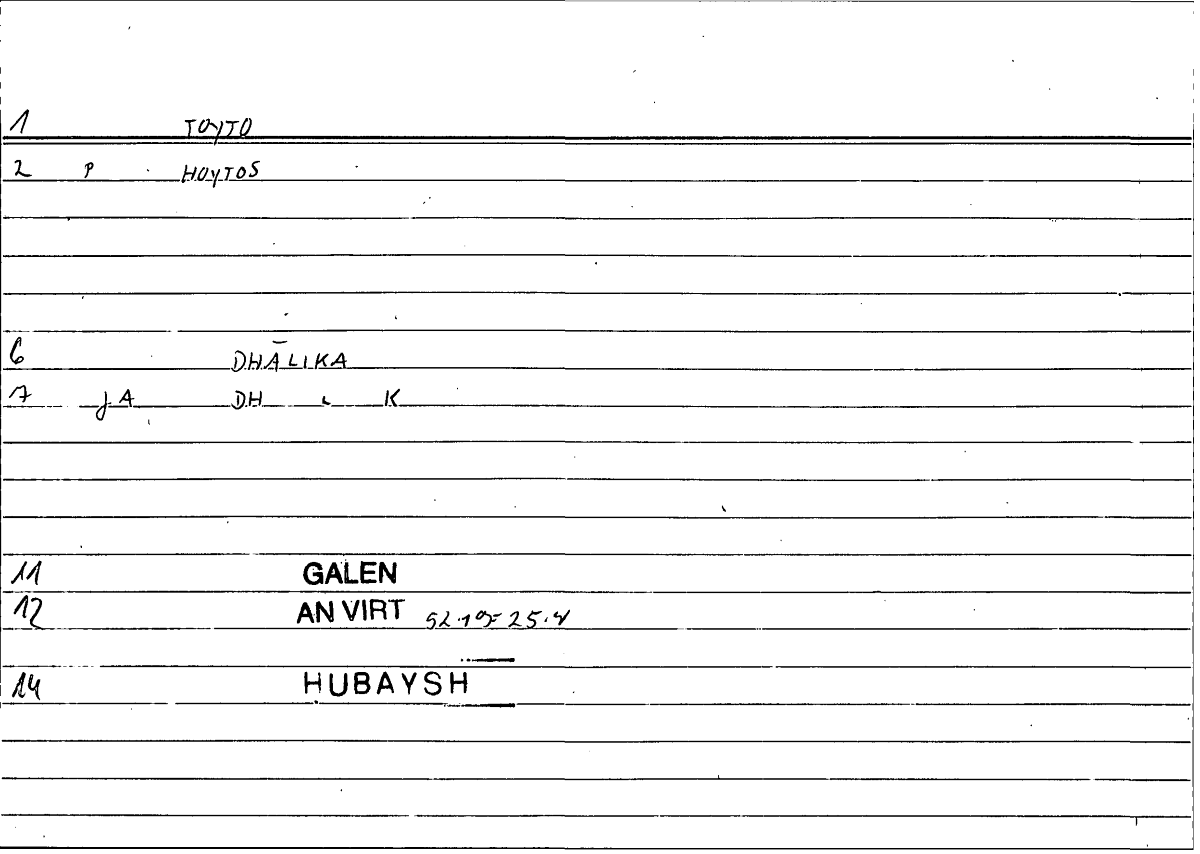 1 TOYTO
2 P HOYTOS
6 DHĀLIKA
7 JA DH K
11 GALEN
12 AN VIRT
14 HUBAYSH